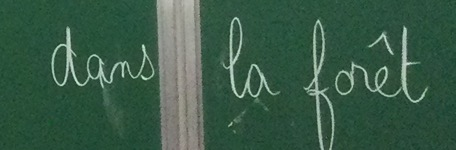 dans la forêt